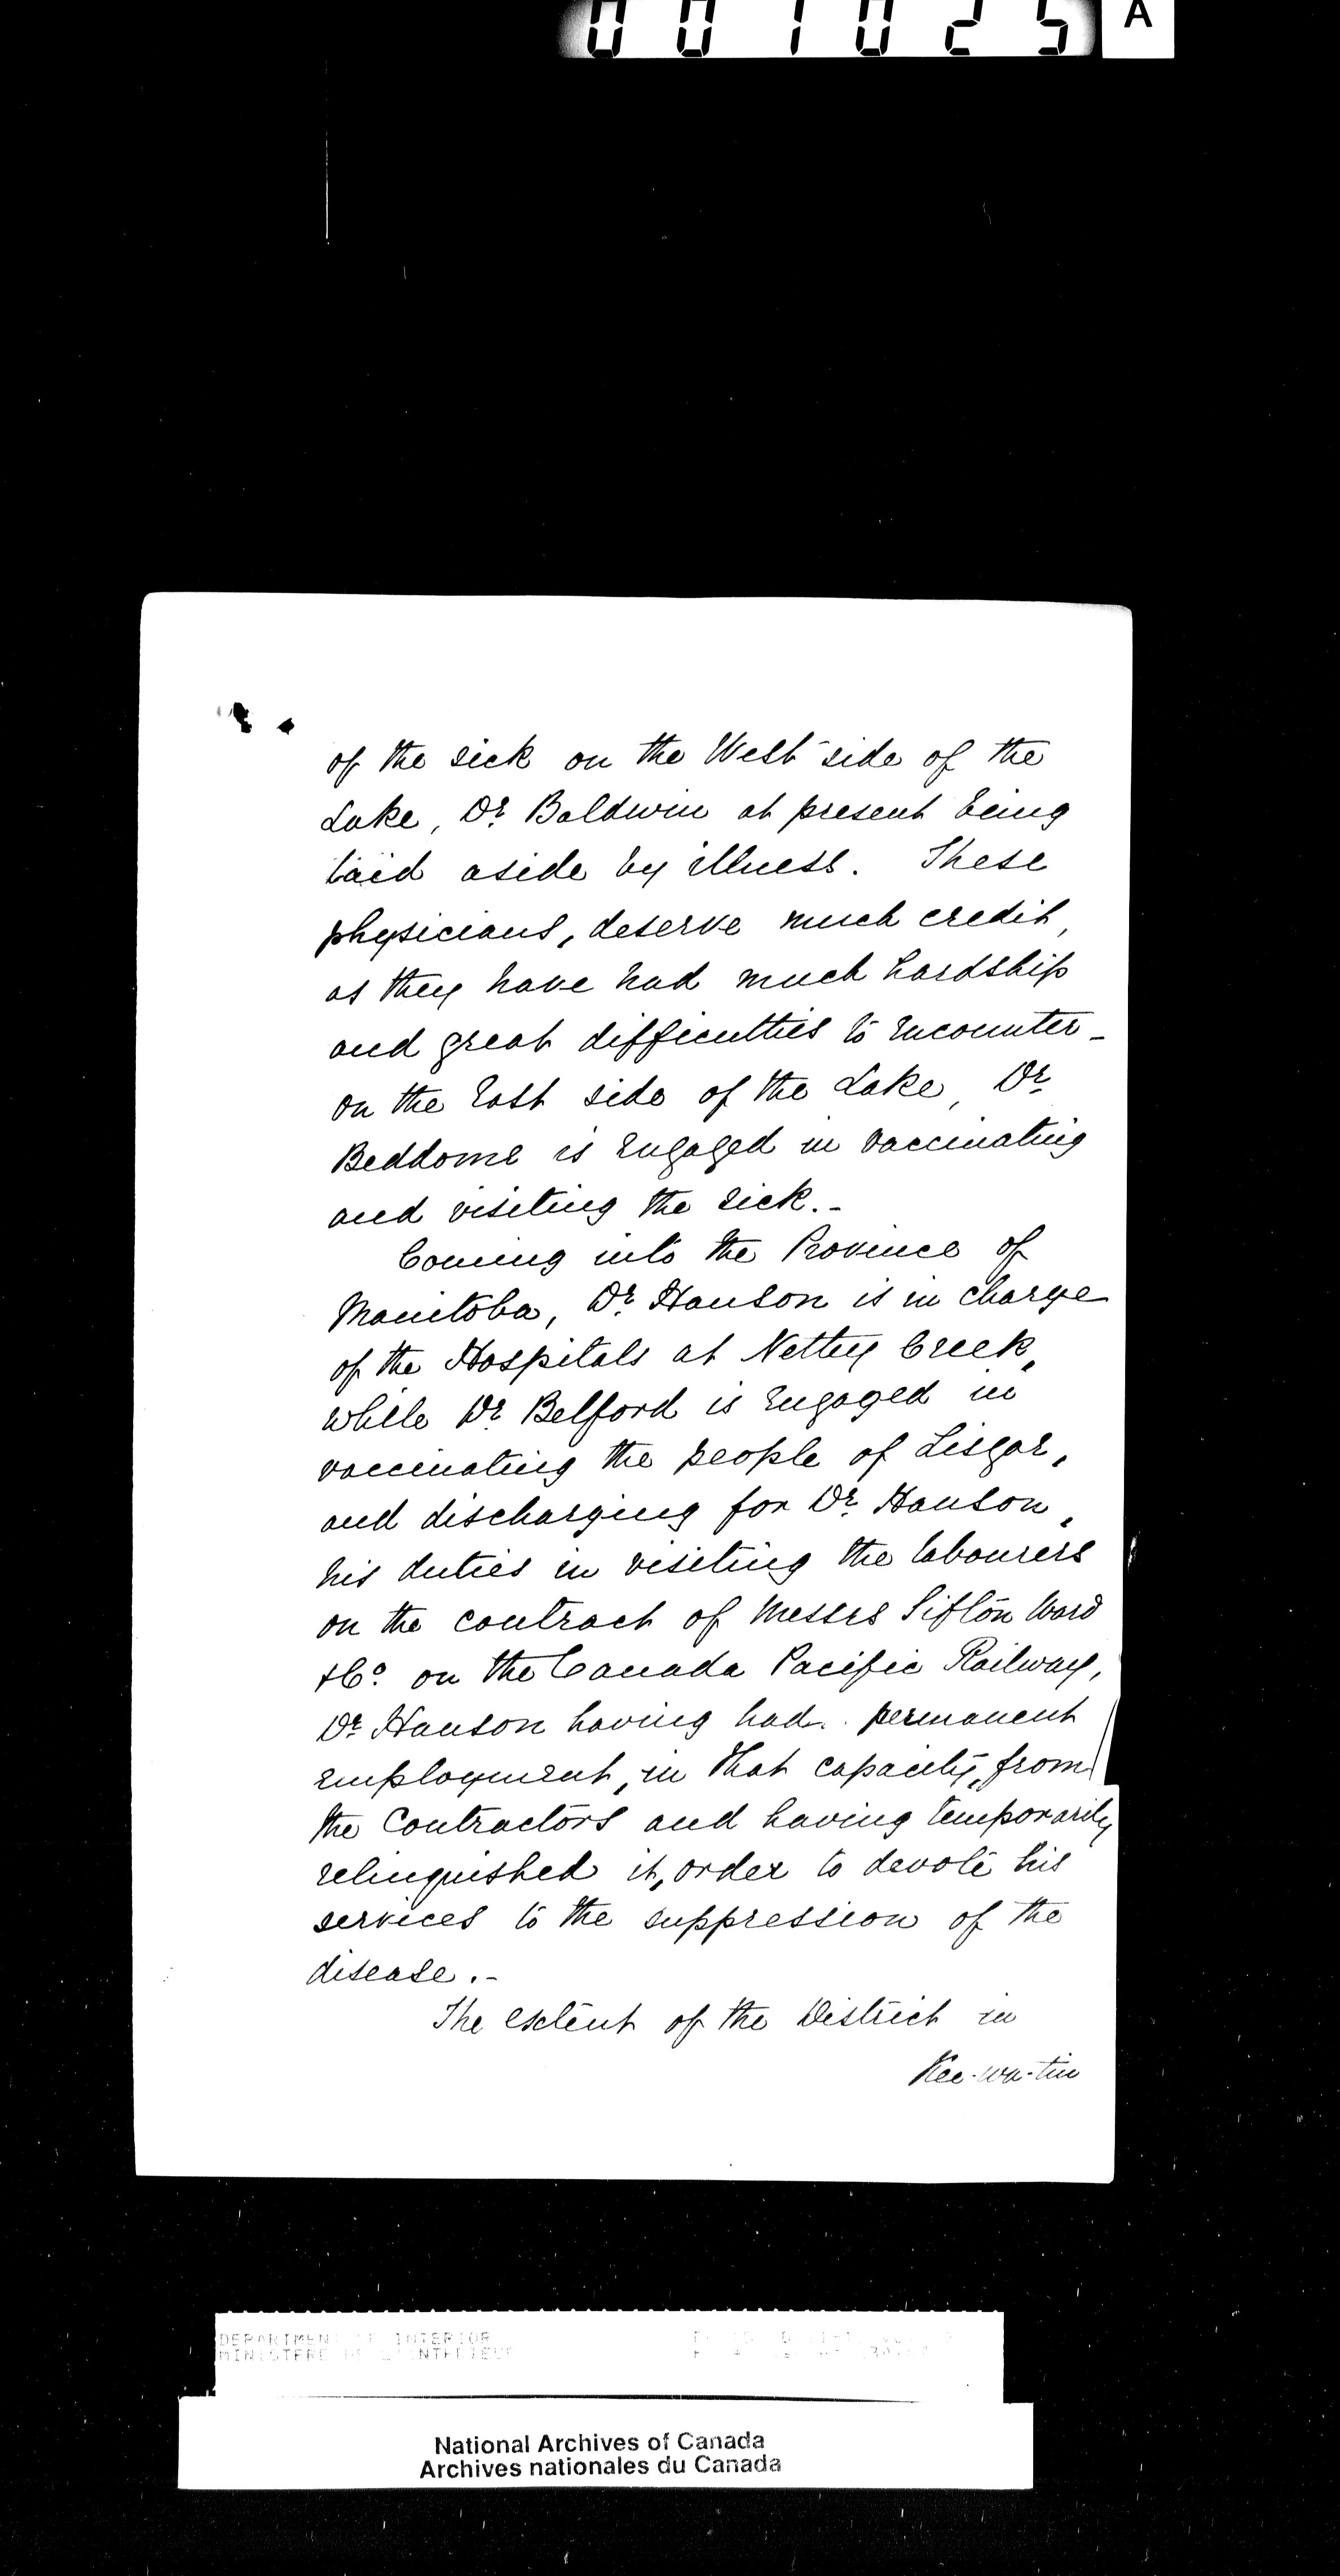 001025 A
of the sick on the West side of the
Lake, Dr Baldwin at present being
laid aside by illness. These
physicians, deserve much credit,
as they have had much hardship
and great difficulties to encounter -
on the East side of the Lake, Dr
Beddome is engaged in vaccinating
and visiting the sick. -
Coming into the Province of
Manitoba, Dr Hanson is in charge
of the Hospitals at Nettly Creek,
while Dr Belford is engaged in
vaccinating the people of Lisgar,
and discharging for Dr Hanson,
his duties in visiting the labourers
on the contract of Messrs Sifton Ward
& Co on the Canada Pacific Railway,
Dr Hanson having had permanent
employment, in that capacity, from
the Contractors and having temporarily
relinquished it, order to devote his
services to the suppression of the
disease. -
The extent of the District in
Kee-wa-tin
DEPARTMENT INTERIOR
MINISTERE
National Archives of Canada
Archives nationales du Canada